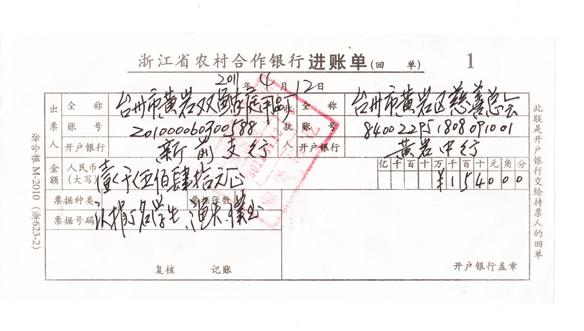 浙江省农村合作银行进账单(回单) 1
2011年4月12日
出票人 全称 台州市黄岩双鱼家庭用品厂 收款人 全称 台州市黄岩区慈善总会
账号 201000060300588 账号 840022951808091001
开户银行 新前支行 开户银行 黄岩中行
金额 人民币(大写) 壹仟伍佰肆拾元正 亿千百十万千百十元角分
¥154000
票据种类 票据张数
票据号码
复核 记账 开户银行盖章
此联是开户银行交给持票人的回单
浙合模M-2010(浙623-2)